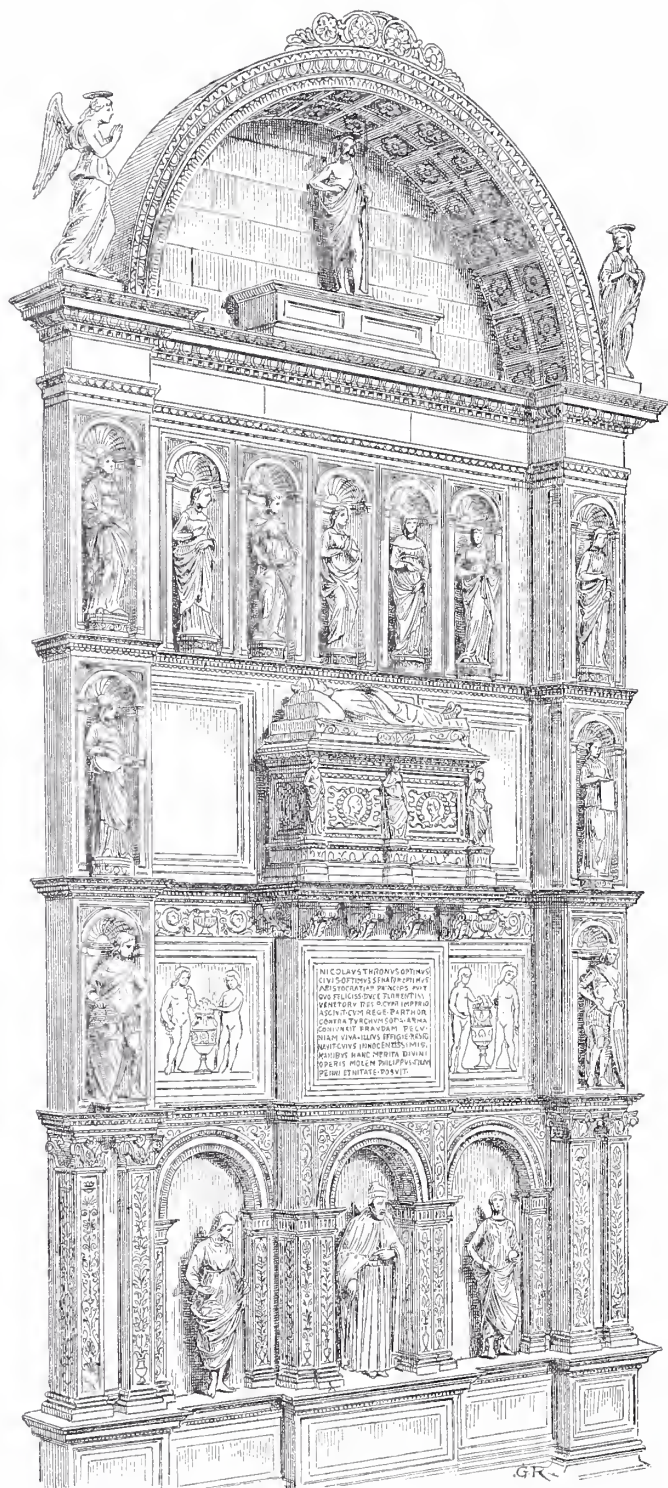 NICOLAVS THRONVS OPTIMVS
CIVIS OPTIMVS SENATOR OPTIMVS
ARISTOCRATIAE PRINCEPS FVIT
QVO FELICISS DVCE FLORENTISS
VENETORV RES P CYPR IMPERIO
ASCIVIT CVM REGE PARTHOR
CONTRA TVRCHVM SOCIA ARMA
CONIVNXIT FRAVDAM PECV
NIAM VIVA ILLIVS EFFIGIE RESIG
NAVIT CVIVS INNOCENTISSIMIS
MANIBVS HANC MERITA DIVINI
OPERIS MOLEM PHILIPPVS
POSVIT
G.R.